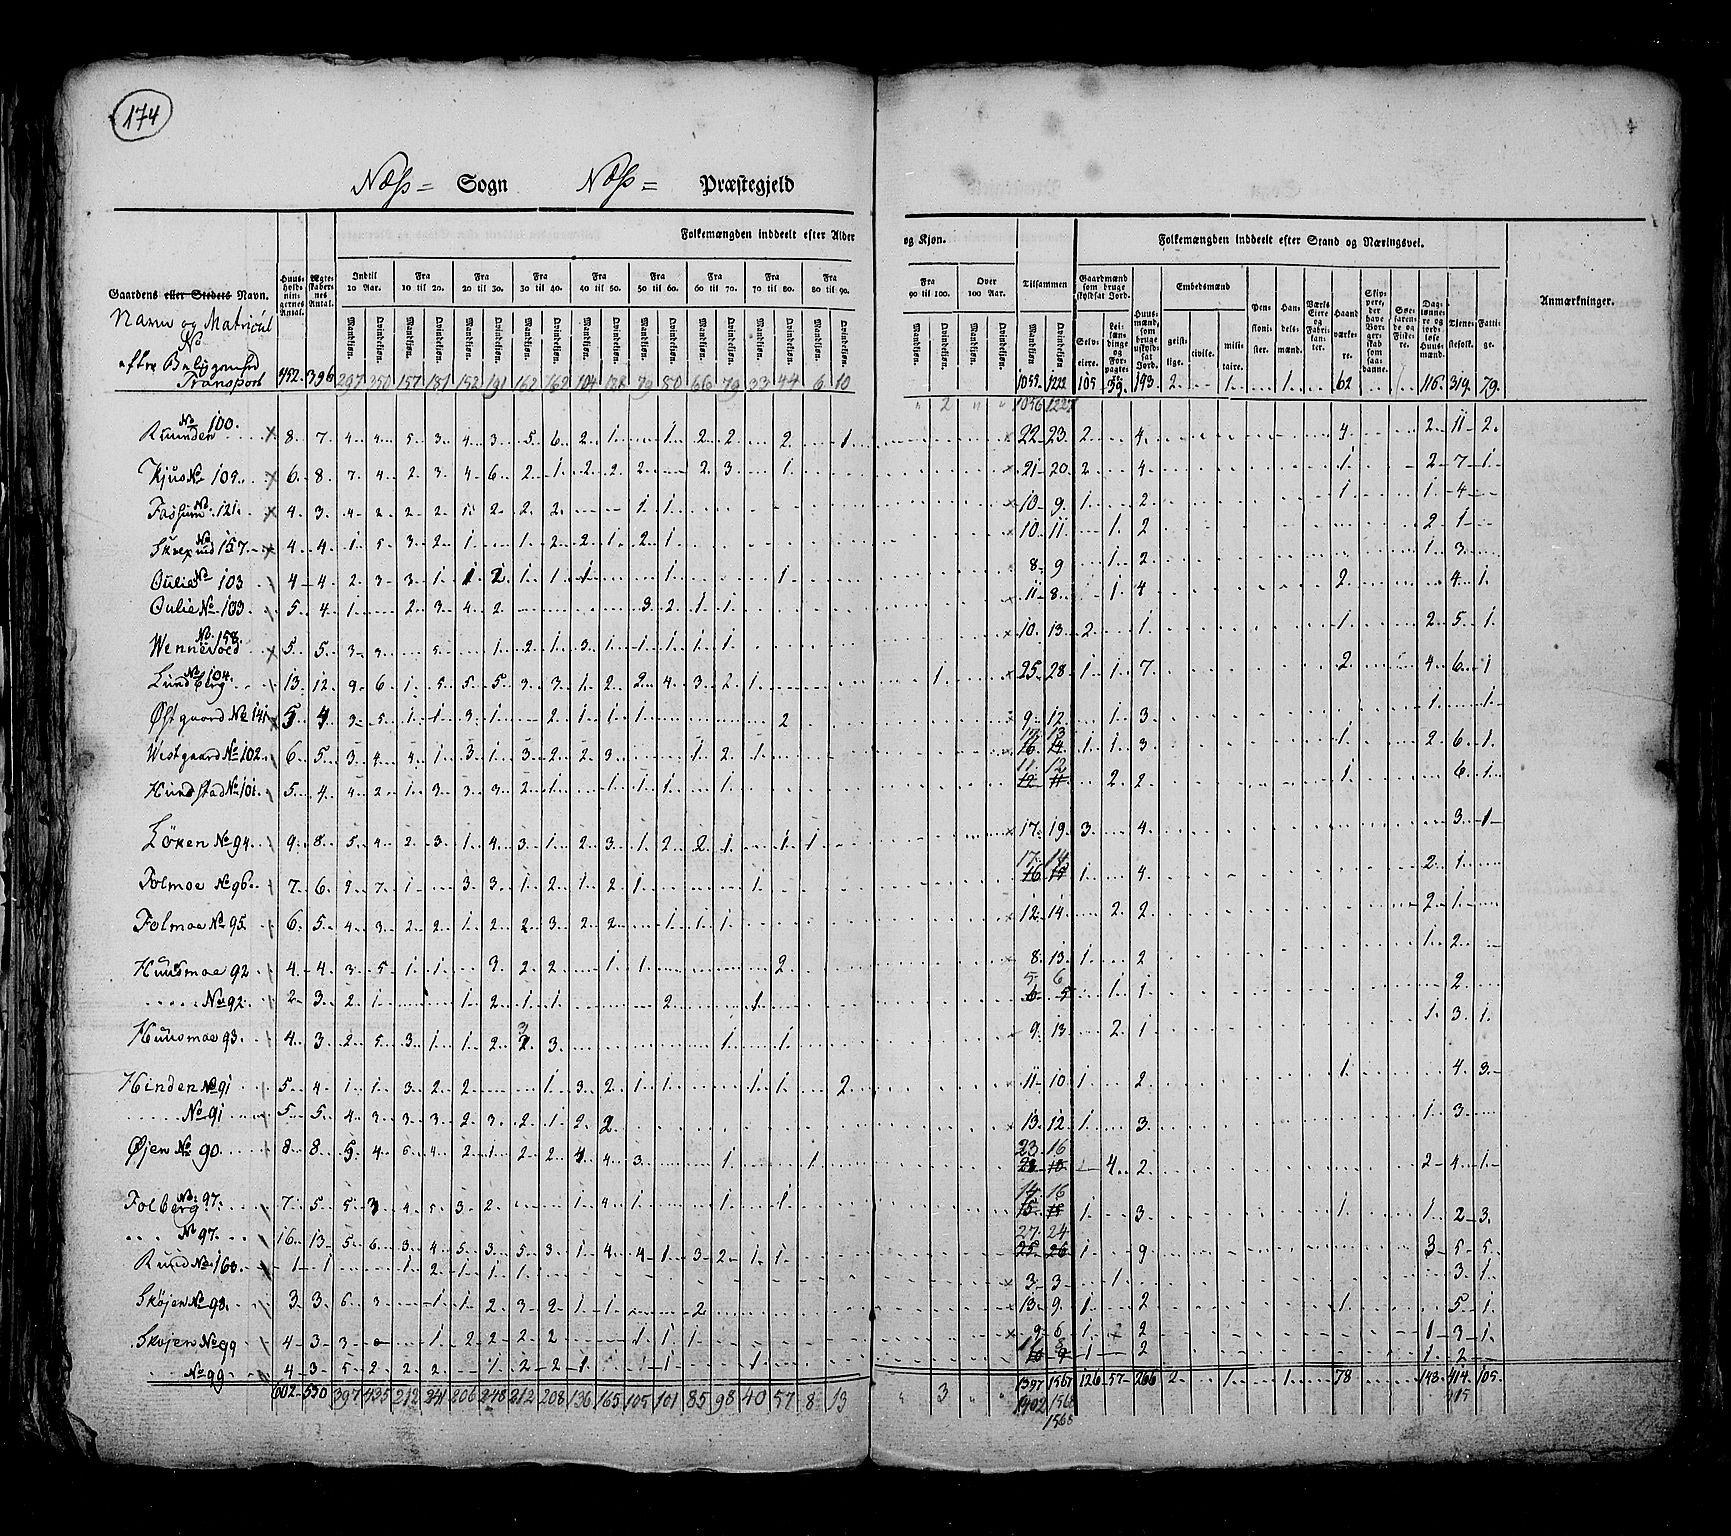 174
Næss = Sogn Næss = Præstegjeld
Folkemængden inddeelt efter Alder og Kjøn.
Folkemængden inddeelt efter Stand og Næringsvei.
Gaardens eller Stedets Navn.
Navn og Matricul
No
Transport
Huus-holdnin-gernes Antal.
Ægte-skaber-nes Antal.
Indtil 10 Aar.
Fra 10 til 20.
Fra 20 til 30.
Fra 30 til 40.
Fra 40 til 50.
Fra 50 til 60.
Fra 60 til 70.
Fra 70 til 80.
Fra 80 til 90.
Fra 90 til 100.
Over 100 Aar.
Tilsammen
Mandkjøn. Qvindekjøn.
Gaardmænd som bruge skyldsat Jord.
Selv-eiere.
Lei-lændinge og For-pagtere.
Huus-mænd, som bruge uskyld-sat Jord.
Embedsmænd
geist-lige.
civile.
mili-taire.
Pen-sioni-ster.
Han-dels-mænd.
Værks Eiere og Fabri-kanter.
Haand-værke-re.
Skip-pere, der have Bor-ger-skab som saa-danne.
Søe-farende og Fiskere.
Dag-lønne-re og jord-løse Huus-mænd.
Tjene-stefolk.
Fatti-ge.
Anmærkninger.
452 396 297 350 157 181 152 191 162 162 104 128 79 80 66 79 33 44 6 10
1055 1222 105 39 193 2 1 1 62 116 314 79
2 1056 1227
No 100.
Ruunden 8 7 4 4 5 3 4 3 5 6 2 1 1 2 2 2 1 22 23 2 4 4 2 11 2
Kjus No 109 6 8 7 4 2 3 4 6 2 1 2 2 2 2 3 1 21 20 2 4 1 2 7 1
No 121.
4 3 4 2 2 2 1 2 2 2 1 1 10 9 1 2 1 1 4
No 157
4 4 1 5 3 2 1 1 2 2 1 2 1 10 11 1 2 2 1
Oulie No 103 4 4 2 3 3 1 1 2 1 1 1 1 1 8 9 1 2 1 3
Oulie No 103 5 4 1 2 3 4 2 3 2 1 1 11 8 1 4 2 4 1
No 158.
Wennevold 5 5 3 3 5 1 2 1 3 1 1 1 1 1 10 13 2 1 1 2 5 1
No 104.
Lundberg 13 12 9 6 1 5 5 5 3 3 1 2 2 4 3 2 1 1 25 28 1 1 7 2 4 6 1
Østgaard No 141 5 4 3 5 1 1 3 1 2 1 1 1 2 9 12 1 3 1 1
Westgaard No 102 6 5 3 4 4 1 3 1 3 2 2 3 1 2 1 1 1 3 1 2 6 1
Hundstad No 101 5 4 4 2 1 3 3 3 2 1 1 1 1 1 1 11 12 2 2 1 6 1
Löken No 94 9 8 5 4 2 3 1 4 3 1 2 3 1 2 2 1 1 1 17 19 3 4 3 1
Folmoe No 96 7 6 2 7 1 3 3 1 2 1 2 1 1 17 14 1 4 2 1
Folmoe No 95 6 5 4 3 2 2 1 2 2 3 2 2 1 1 1 12 14 2 2 2 1
Huusmoe 92 4 4 3 5 1 1 3 2 2 1 1 2 8 13 1 2 1 2
No 92 2 3 2 1 1 2 1 1 2 1 5 6 1 1 2
Huusmoe 93 4 3 2 5 3 1 1 2 3 3 1 1 9 13 2 1 1 3 1
Hinden No 91 5 4 1 1 3 2 2 1 3 2 1 1 1 1 2 11 10 1 2 1 4 3
No 91 5 5 4 3 3 3 2 3 2 1 2 2 13 12 1 3 1 3
Øjen No 90 8 8 5 4 5 4 2 1 2 2 4 4 3 1 1 23 16 4 2 2 4 1
Folberg No 97. 7 5 5 3 4 5 3 2 1 4 1 1 1 14 16 1 3 1 1 2 3
No 97. 16 13 5 6 3 4 5 3 5 3 1 4 4 1 3 2 1 1 27 24 1 9 3 5 5
Ruud No 160 1 1 1 2 1 1 1 3 3 1 3 1
Sköjen No 98 3 3 6 3 1 1 2 3 2 1 1 2 13 9 1 2 1 5 1
Skojen No 99 4 3 3 1 2 2 2 2 1 1 1 9 6 1 2 1 3 1
No 99 4 3 5 2 2 2 1 2 2 1 1 1 1 2 1 2
602 530 397 435 212 241 206 248 212 208 136 165 105 101 85 98 40 57 8 13
3 1397 1567 126 57 266 2 1 1 78 143 414 105
1402 1568 415
1568